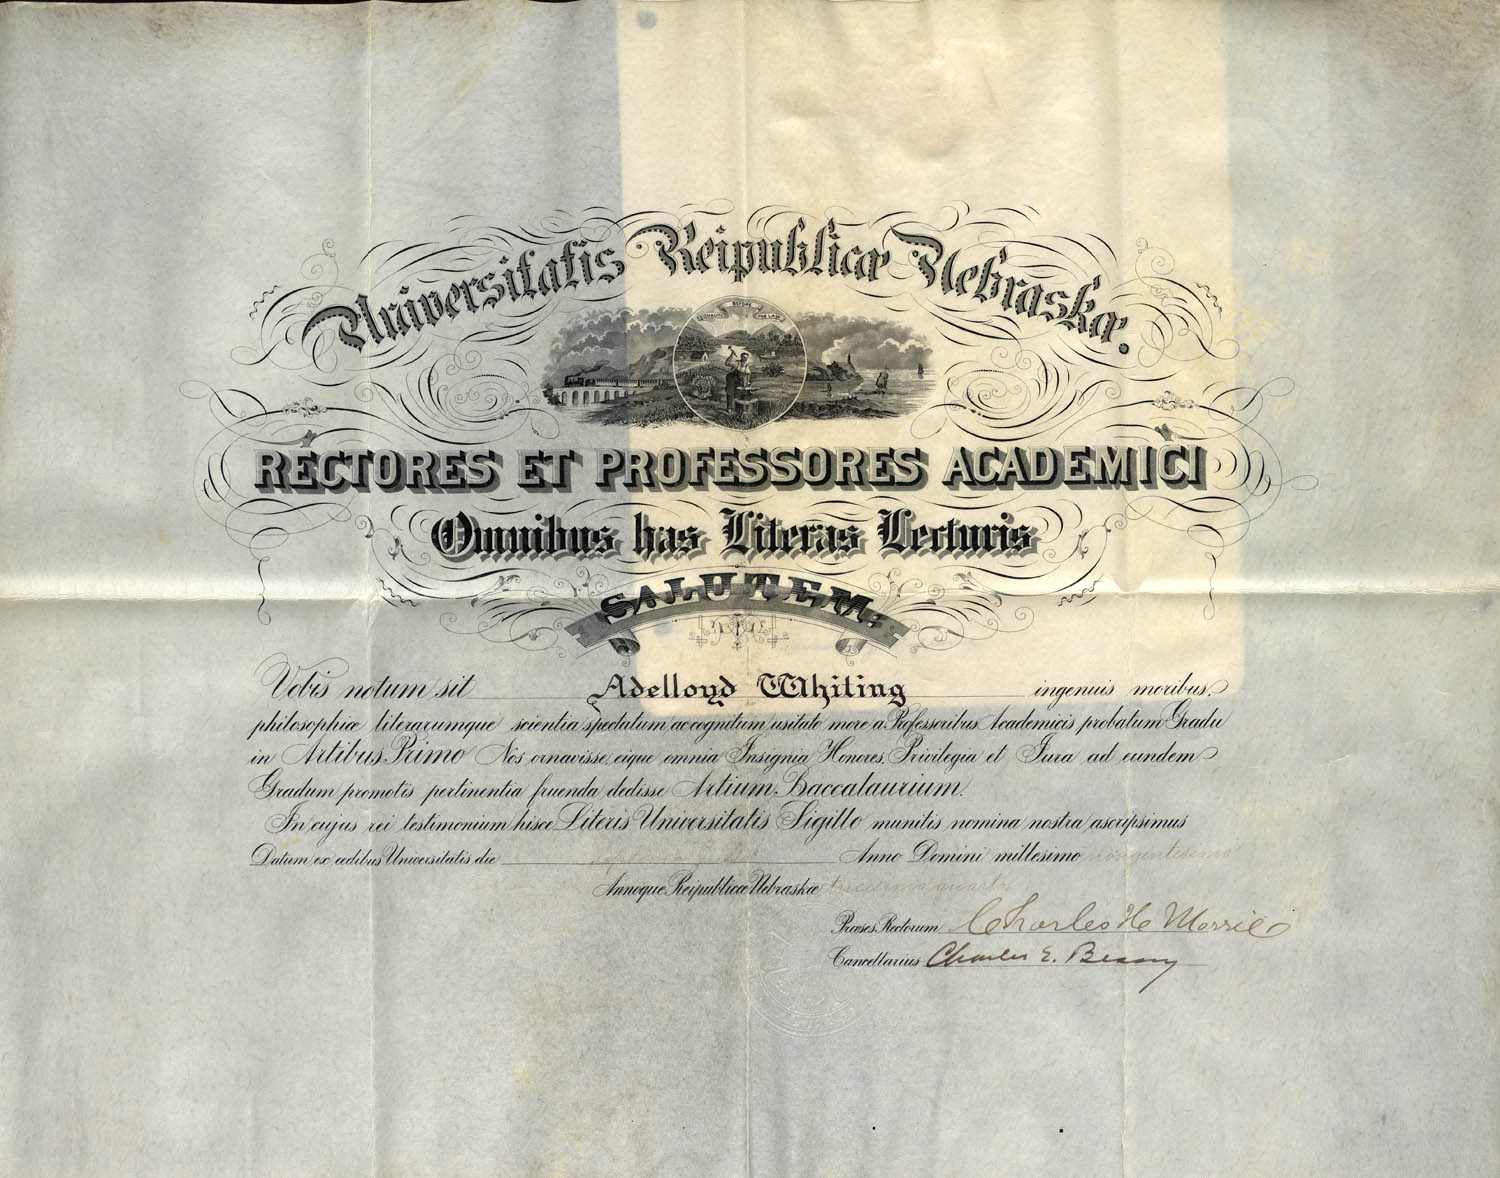 Universitatis Reipublicæ Nebraskæ.
EQUALITY BEFORE THE LAW
RECTORES ET PROFESSORES ACADEMICI
Omnibus has Literas Lecturis
SALUTEM:
Vobis notum sit Adelloyd Whiting ingenuis moribus,
philosophiæ literarumque scientia spectatum ac cognitum, usitato more a Professoribus Academicis probatum Gradu
in Artibus Primo Nos ornavisse, eique omnia Insignia Honores, Privilegia et Jura ad eundem
Gradum promotis pertinentia fruenda dedisse Artium Baccalaurium.
In cujus rei testimonium hisce Literis Universitatis Sigillo munitis nomina nostra ascripsimus
Datum ex ædibus Universitatis die Anno Domini millesimo nongentesimo
Annoque Reipublicæ Nebraskæ tricesimo quarto
Præses Rectorum Charles H Morrill
Cancellarius Charles E. Bessey